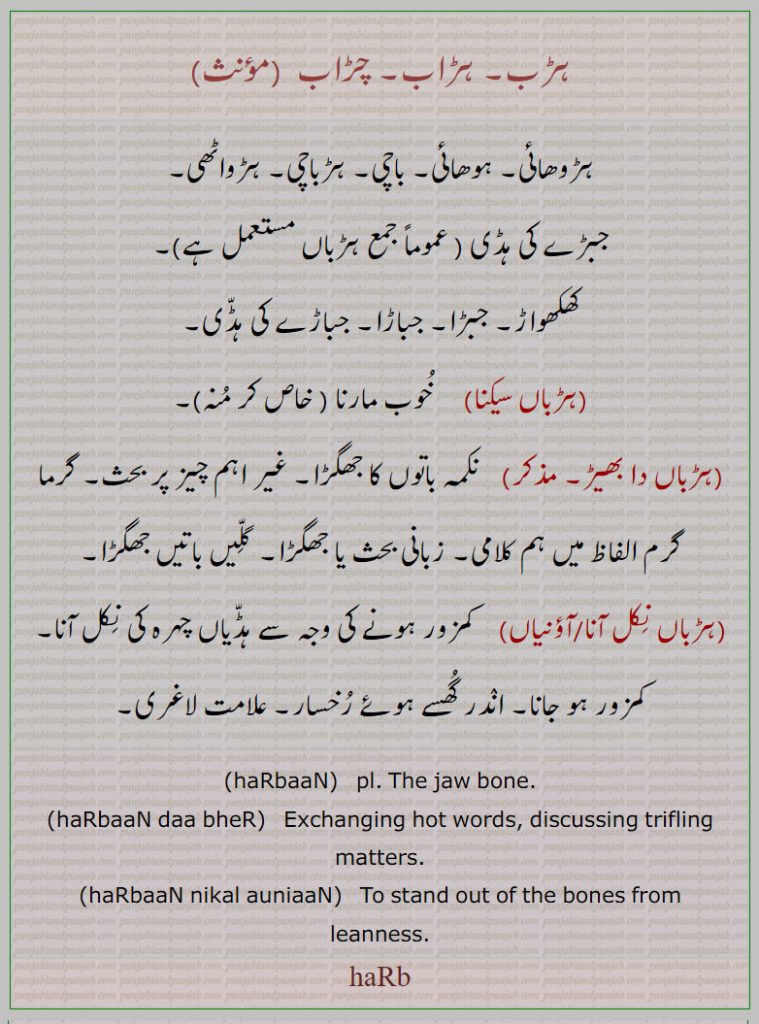 ہڑب۔ ہڑاب۔ چڑاب (مؤنث)
ہڑوھائی۔ ہوھائی۔ باچی۔ ہڑباچی۔ ہڑواٹھی۔
جبڑے کی ہڈی (عموماً جمع ہڑباں مستعمل ہے)۔
کھکھواڑ۔ جبڑا۔ جباڑا۔ جباڑے کی ہڈّی۔
(ہڑباں سیکنا) خُوب مارنا (خاص کر مُنہ)۔
(ہڑباں دا بھیڑ۔ مذکر) نکمہ باتوں کا جھگڑا۔ غیر اہم چیز پر بحث۔ گرما
گرم الفاظ میں ہم کلامی۔ زبانی بحث یا جھگڑا۔ گلِّیں باتیں جھگڑا۔
(ہڑباں نِکل آنا/آؤنیاں) کمزور ہونے کی وجہ سے ہڈّیاں چہرہ کی نِکل آنا۔
کمزور ہو جانا۔ انْدر گُھسے ہوئے رُخسار۔ علامت لاغری۔
(haRbaaN) pl. The jaw bone.
(haRbaaN daa bheR) Exchanging hot words, discussing trifling
matters.
(haRbaaN nikal auniaaN) To stand out of the bones from
leanness.
haRb